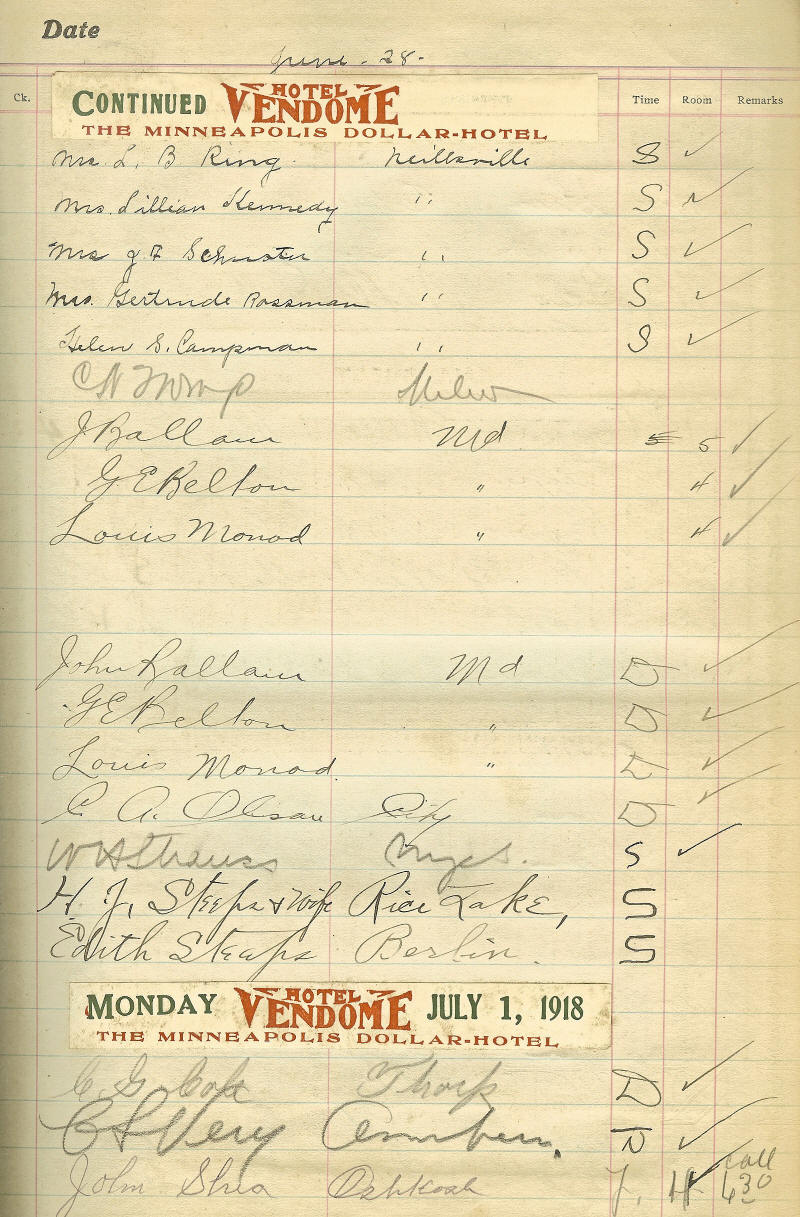 Date
June - 28 -
Ck. CONTINUED HOTEL VENDOME Time Room Remarks
THE MINNEAPOLIS DOLLAR-HOTEL
Mrs. L. B Ring Neillsville S ✓
Mrs. Lillian Kennedy " S ✓
Mrs J. F Schuster " S ✓
Mrs. Gertrude Rossman " S ✓
Helen S. Campman " S ✓
C N Milw
J Ballam Md 5 5 ✓
G E Belton " 4 ✓
Louis Monod " 4 ✓
John Ballam Md D ✓
G E Belton " D ✓
Louis Monod. " D ✓
C. A. Olson City D ✓
W H Strauss S ✓
H. J. Steeps & Wife Rice Lake, S
Edith Steaps Berlin. S
MONDAY HOTEL VENDOME JULY 1, 1918
THE MINNEAPOLIS DOLLAR-HOTEL
C. G. Cole Thorp D ✓
C L Very D ✓
John Shea Oshkosh 4 ✓ call 6 30